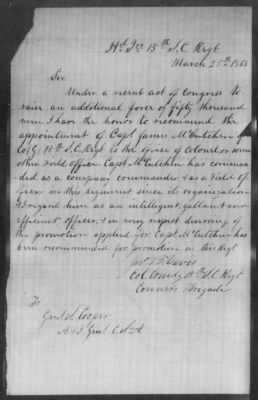 Hd Qrs 15th S.C. Regt
March 25th 1865
Sir
Under a recent act of Congress to
raise an additional force of fifty thousand
men I have the honor to recommend the
appointment of Capt James McCutchen of
Co. G 15th S.C. Regt to the office of Colonel or some
other field officer. Capt McCutchen has comman
ded as a company commander & as a field of
ficer in this regiment since its organization
I regard him as an intelligent, gallant and
efficient officer, & in every respect deserving of
the promotion applied for. Capt. McCutchen has
been recommended for promotion in this Regt
Davis
Col. Comdg 15th S.C. Regt
Conners Brigade
To
Genl S. Cooper
A & I Genl C.S.A.